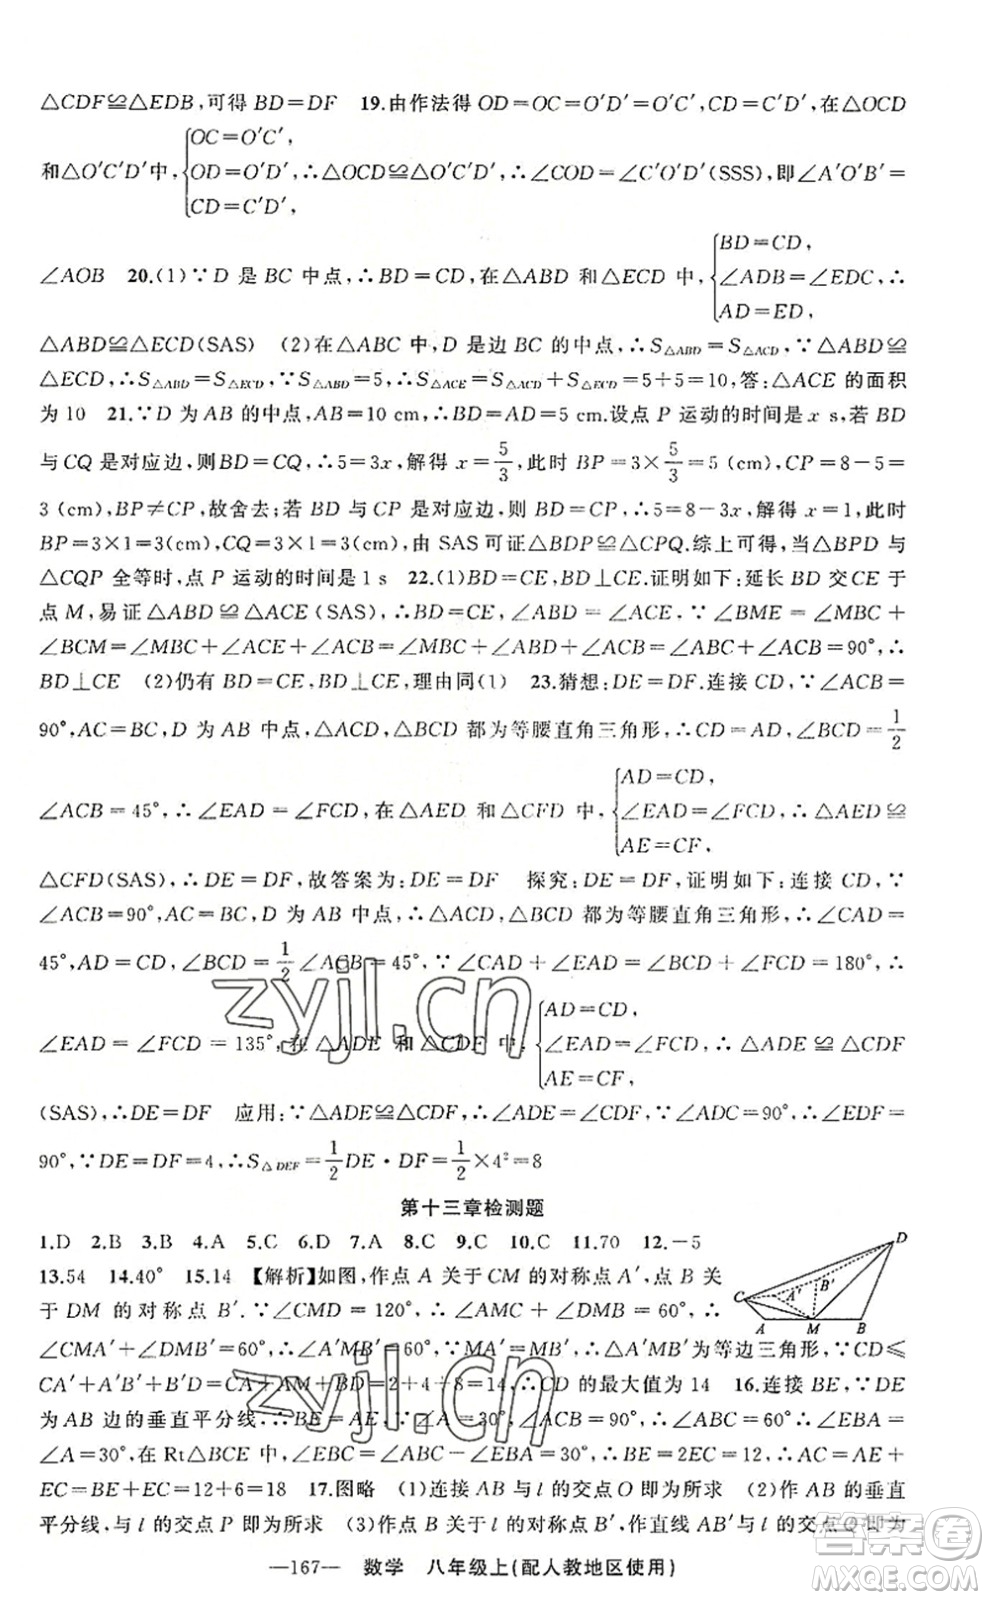 △CDF≌△EDB,可得 BD=DF　19.由作法得 OD=OC=O′D′=O′C′,CD=C′D′,在△OCD
OC=O′C′,
和△O′C′D′中, OD=O′D′,∴△OCD≌△O′C′D′,∴∠COD=∠C′O′D′(SSS),即∠A′O′B′=
CD=C′D′,
BD=CD,
∠AOB　20.(1)∵D 是 BC 中点,∴BD=CD,在△ABD 和△ECD 中, ∠ADB=∠EDC,∴
AD=ED,
△ABD≌△ECD(SAS)　(2)在△ABC 中,D 是边 BC 的中点,∴S△ABD=S△ACD,∵△ABD≌
△ECD,∴S△ABD=S△ECD,∵S△ABD=5,∴S△ACE=S△ACD+S△ECD=5+5=10,答:△ACE 的面积
为 10　21.∵D 为 AB 的中点,AB=10 cm,∴BD=AD=5 cm.设点 P 运动的时间是 x s,若 BD
与 CQ 是对应边,则BD=CQ,∴5=3x,解得 x=5/3,此时 BP=3×5/3=5 (cm),CP=8-5=
3 (cm),BP≠CP,故舍去;若 BD 与 CP 是对应边,则 BD=CP,∴5=8-3x,解得 x=1,此时
BP=3×1=3(cm),CQ=3×1=3(cm),由 SAS 可证△BDP≌△CPQ.综上可得,当△BPD 与
△CQP 全等时,点 P 运动的时间是1 s　22.(1)BD=CE,BD⊥CE.证明如下:延长 BD 交 CE 于
点 M,易证△ABD≌△ACE(SAS),∴BD=CE,∠ABD=∠ACE,∵∠BME=∠MBC+
∠BCM=∠MBC+∠ACE+∠ACB=∠MBC+∠ABD+∠ACB=∠ABC+∠ACB=90°,∴
BD⊥CE　(2)仍有 BD=CE,BD⊥CE,理由同(1)　23.猜想:DE=DF.连接 CD,∵∠ACB=
90°,AC=BC,D 为 AB 中点,∴△ACD,△BCD 都为等腰直角三角形,∴CD=AD,∠BCD=1/2
AD=CD,
∠ACB=45°,∴∠EAD=∠FCD,在△AED 和△CFD 中, ∠EAD=∠FCD,∴△AED≌
AE=CF,
△CFD(SAS),∴DE=DF,故答案为:DE=DF　探究:DE=DF,证明如下:连接 CD,∵
∠ACB=90°,AC=BC,D 为 AB 中点,∴△ACD,△BCD 都为等腰直角三角形,∴∠CAD=
45°,AD=CD,∠BCD=1/2∠ACB=45°,∵∠CAD+∠EAD=∠BCD+∠FCD=180°,∴
AD=CD,
∠EAD=∠FCD=135°,在△ADE 和△CDF 中, ∠EAD=∠FCD,∴△ADE≌△CDF
AE=CF,
(SAS),∴DE=DF　应用:∵△ADE≌△CDF,∴∠ADE=∠CDF,∵∠ADC=90°,∴∠EDF=
90°,∵DE=DF=4,∴S△DEF=1/2DE·DF=1/2×4²=8
第十三章检测题
1.D　2.B　3.B　4.A　5.C　6.D　7.A　8.C　9.C　10.C　11.70　12.-5
13.54　14.40°　15.14　【解析】如图,作点 A 关于 CM 的对称点 A′,点 B 关
于 DM 的对称点 B′.∵∠CMD=120°,∴∠AMC+∠DMB=60°,∴
∠CMA′+∠DMB′=60°,∴∠A′MB′=60°,∵MA′=MB′,∴△A′MB′为等边三角形,∵CD≤
CA′+A′B′+B′D=CA+AM+BD=2+4+8=14,∴CD 的最大值为 14　16.连接 BE,∵DE
为 AB 边的垂直平分线,∴BE=AE,∵∠A=30°,∠ACB=90°,∴∠ABC=60°∴∠EBA=
∠A=30°,在 Rt△BCE 中,∠EBC=∠ABC-∠EBA=30°,∴BE=2EC=12,∴AC=AE+
EC=BE+EC=12+6=18　17.图略　(1)连接 AB 与 l 的交点O 即为所求　(2)作 AB 的垂直
平分线,与 l 的交点 P 即为所求　(3)作点 B 关于 l 的对称点 B′,作直线 AB′与 l 的交点 Q 即为
D
B′
C
A′
A M B
—167—　数学　八年级上(配人教地区使用)
zyjl.cn
zyjl.cn
答案圈
MXQE.COM